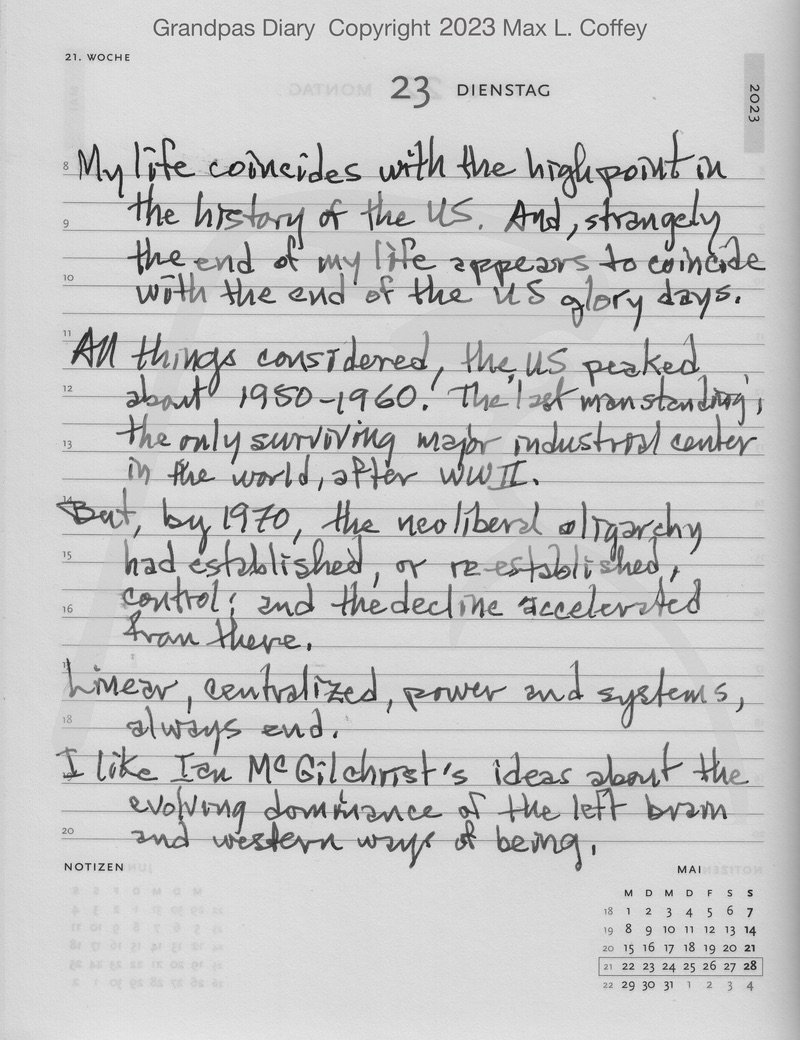 Grandpas Diary Copyright 2023 Max L. Coffey
21. WOCHE
23 DIENSTAG
2023
8 My life coincides with the high point in
9 the history of the US. And, strangely
the end of my life appears to coincide
10 with the end of the US glory days.
11 All things considered, the US peaked
12 about 1950-1960. The last man standing,
13 the only surviving major industrial center
in the world, after WW II.
14 But, by 1970, the neoliberal oligarchy
15 had established, or re-established,
16 control; and the decline accelerated
from there.
17 Linear, centralized, power and systems,
18 always end.
I like Ian McGilchrist's ideas about the
evolving dominance of the left brain
20 and western ways of being.
NOTIZEN
MAI
M D M D F S S
18 1 2 3 4 5 6 7
19 8 9 10 11 12 13 14
20 15 16 17 18 19 20 21
21 22 23 24 25 26 27 28
22 29 30 31 1 2 3 4